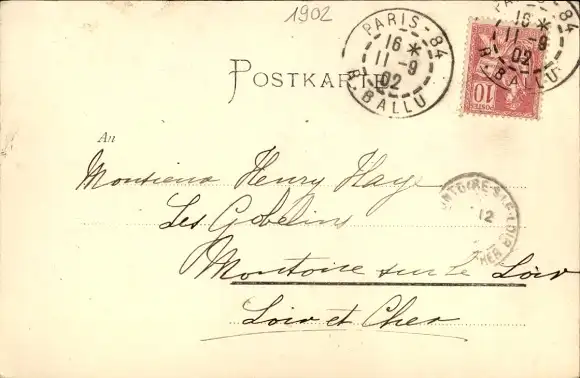 1902
PARIS-84
16 *
11-9
02
R. BALLU
PARIS-84
16 *
11-9
02
R. BALLU
10
POSTES
POSTKARTE
An
Monsieur Henry Haye
Les Gobelins
Montoire sur le Loir
Loir et Cher
12